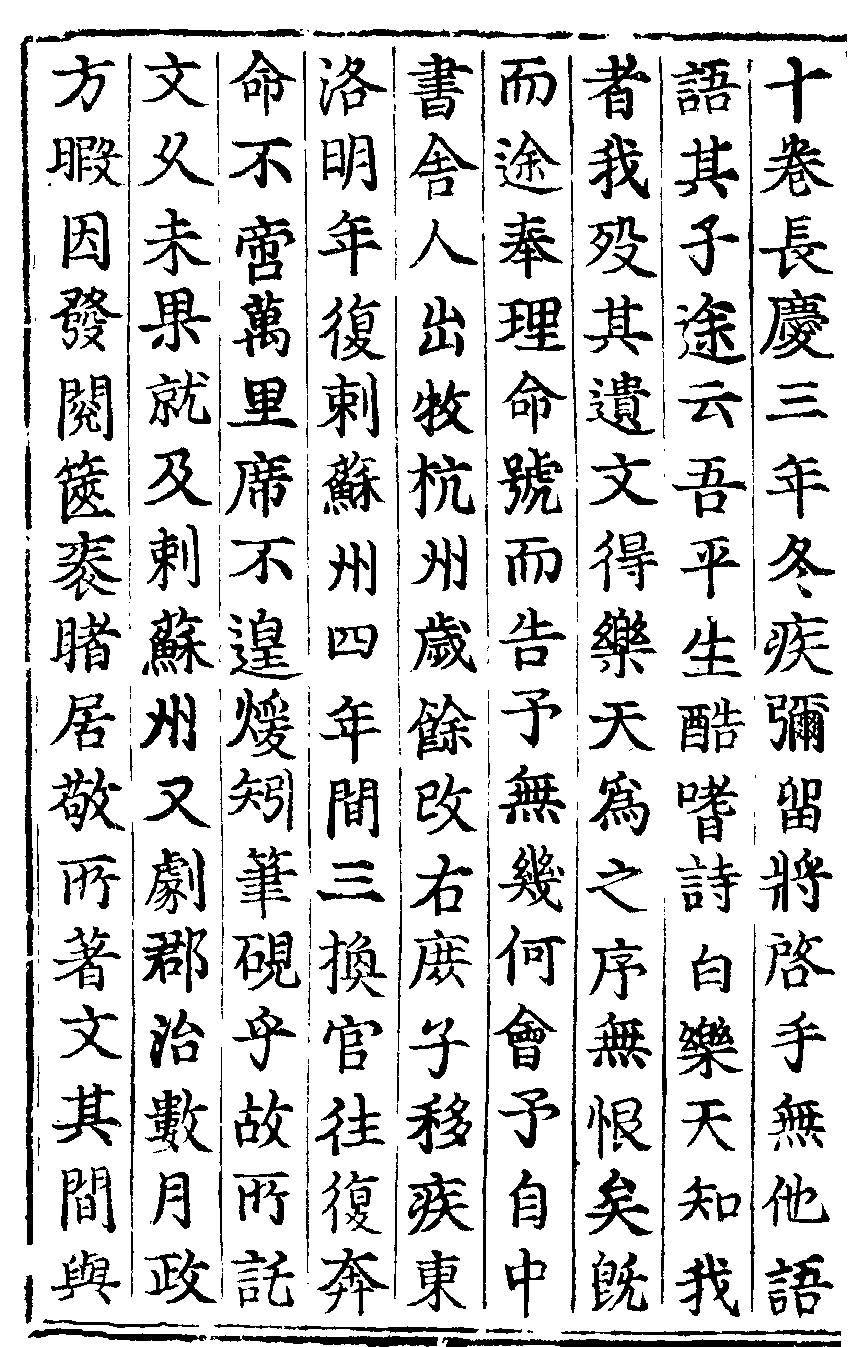 十巻長慶三年冬疾彌留將啓手無他語
語其子途云吾平生酷嗜詩白樂天知我
者我殁其遺文得樂天爲之序無恨矣旣
而途奉理命號而告予無幾何會予自中
書舎人出牧杭州歲餘改右庻子移疾東
洛明年復刺蘇州四年間三換官往復奔
命不啻萬里席不遑煖矧筆硯乎故所託
文乆未果就及刺蘇州又劇郡治數月政
方暇因發閱篋袠睹居敬所著文其間與